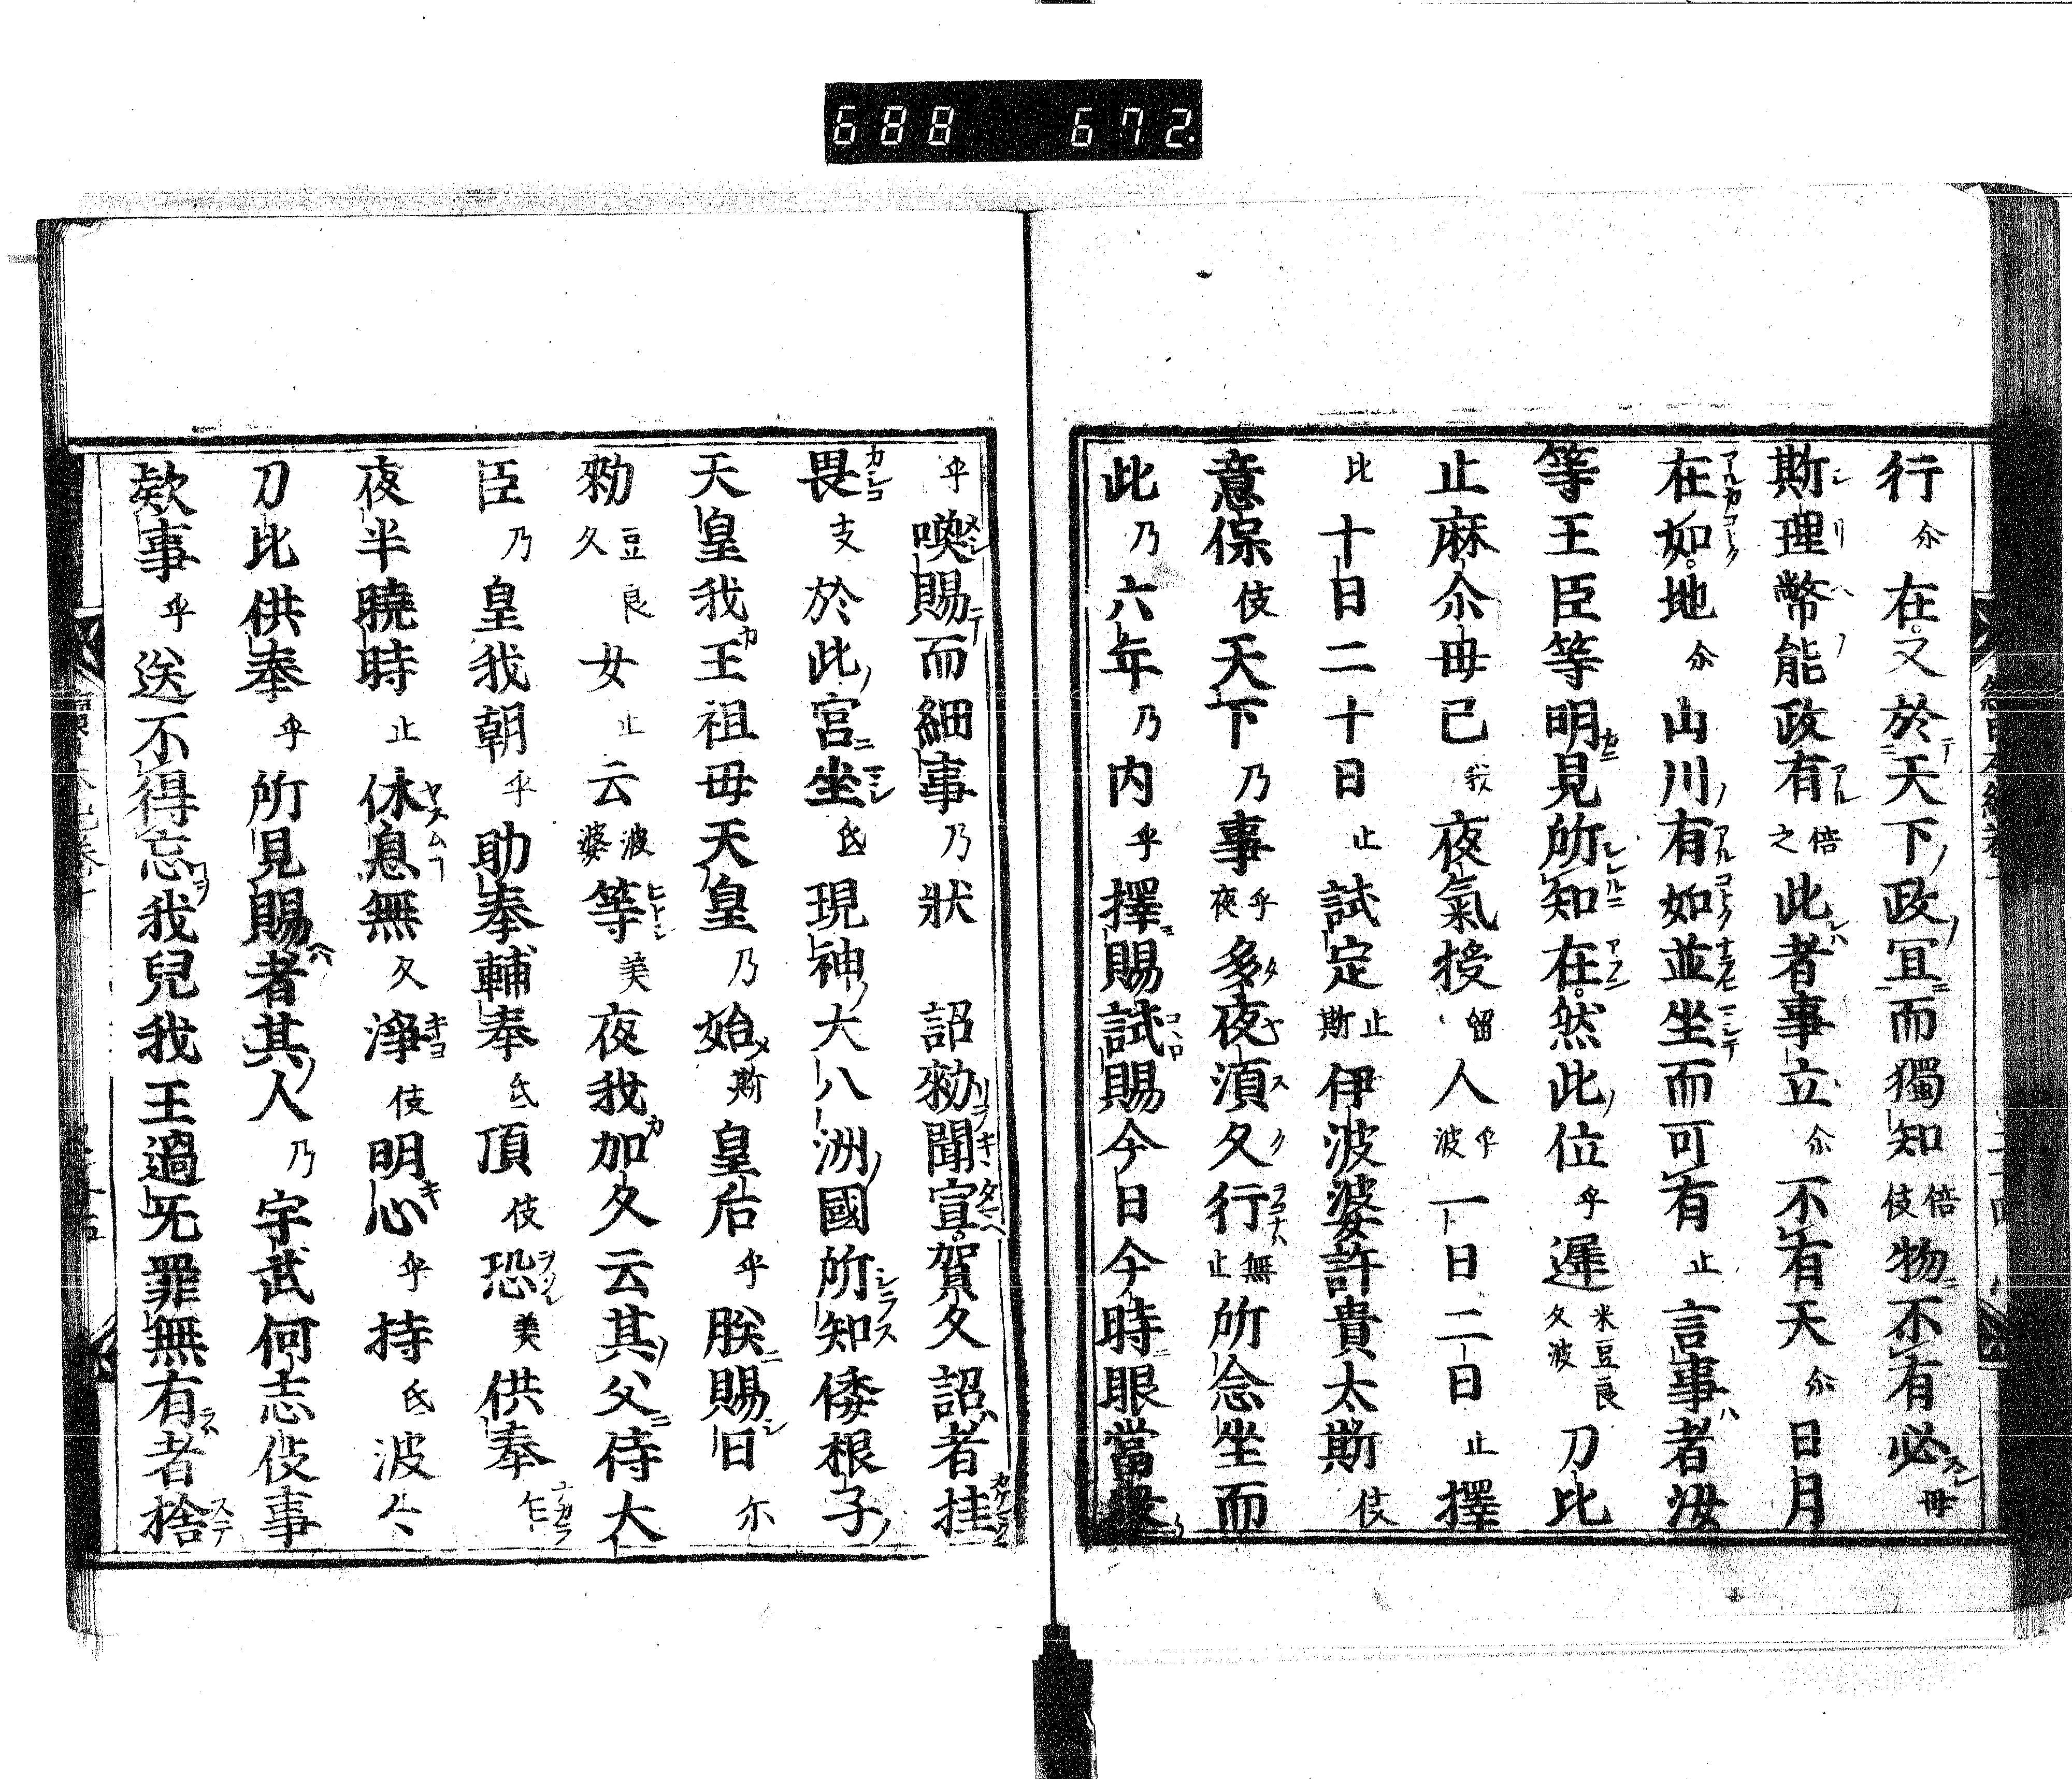 688 672.
行尒在又於天下政冝而獨知倍伎物不有必毋
斯理幣能政有倍之此者事立尒不有天尒日月
在如地尒山川有如並坐而可有止言事者汝
等王臣等明見所知在然此位乎遅米豆良久波刀比
止麻尒毋己我夜氣授留人乎波一日二日止擇
比十日二十日止試定止斯伊波婆許貴太斯伎
意保伎天下乃事乎夜多夜湏久行無止所念坐而
此乃六年乃内乎擇賜試賜今日今時眼當
乎喚賜而細事乃狀詔勑聞宣賀久詔者挂
畏支於此宮坐氐現神大八洲國所知倭根子
天皇我王祖毋天皇乃始斯皇后乎朕賜日尓
勑豆良久女止云波婆等美夜我加久云其父侍大
臣乃皇我朝乎助奉輔奉氐頂伎恐美供奉乍
夜半曉時止休息無久淨伎明心乎持氐波
刀比供奉乎所見賜者其人乃宇武何志伎事
欵事乎送不得忘我兒我王過旡罪無有者捨